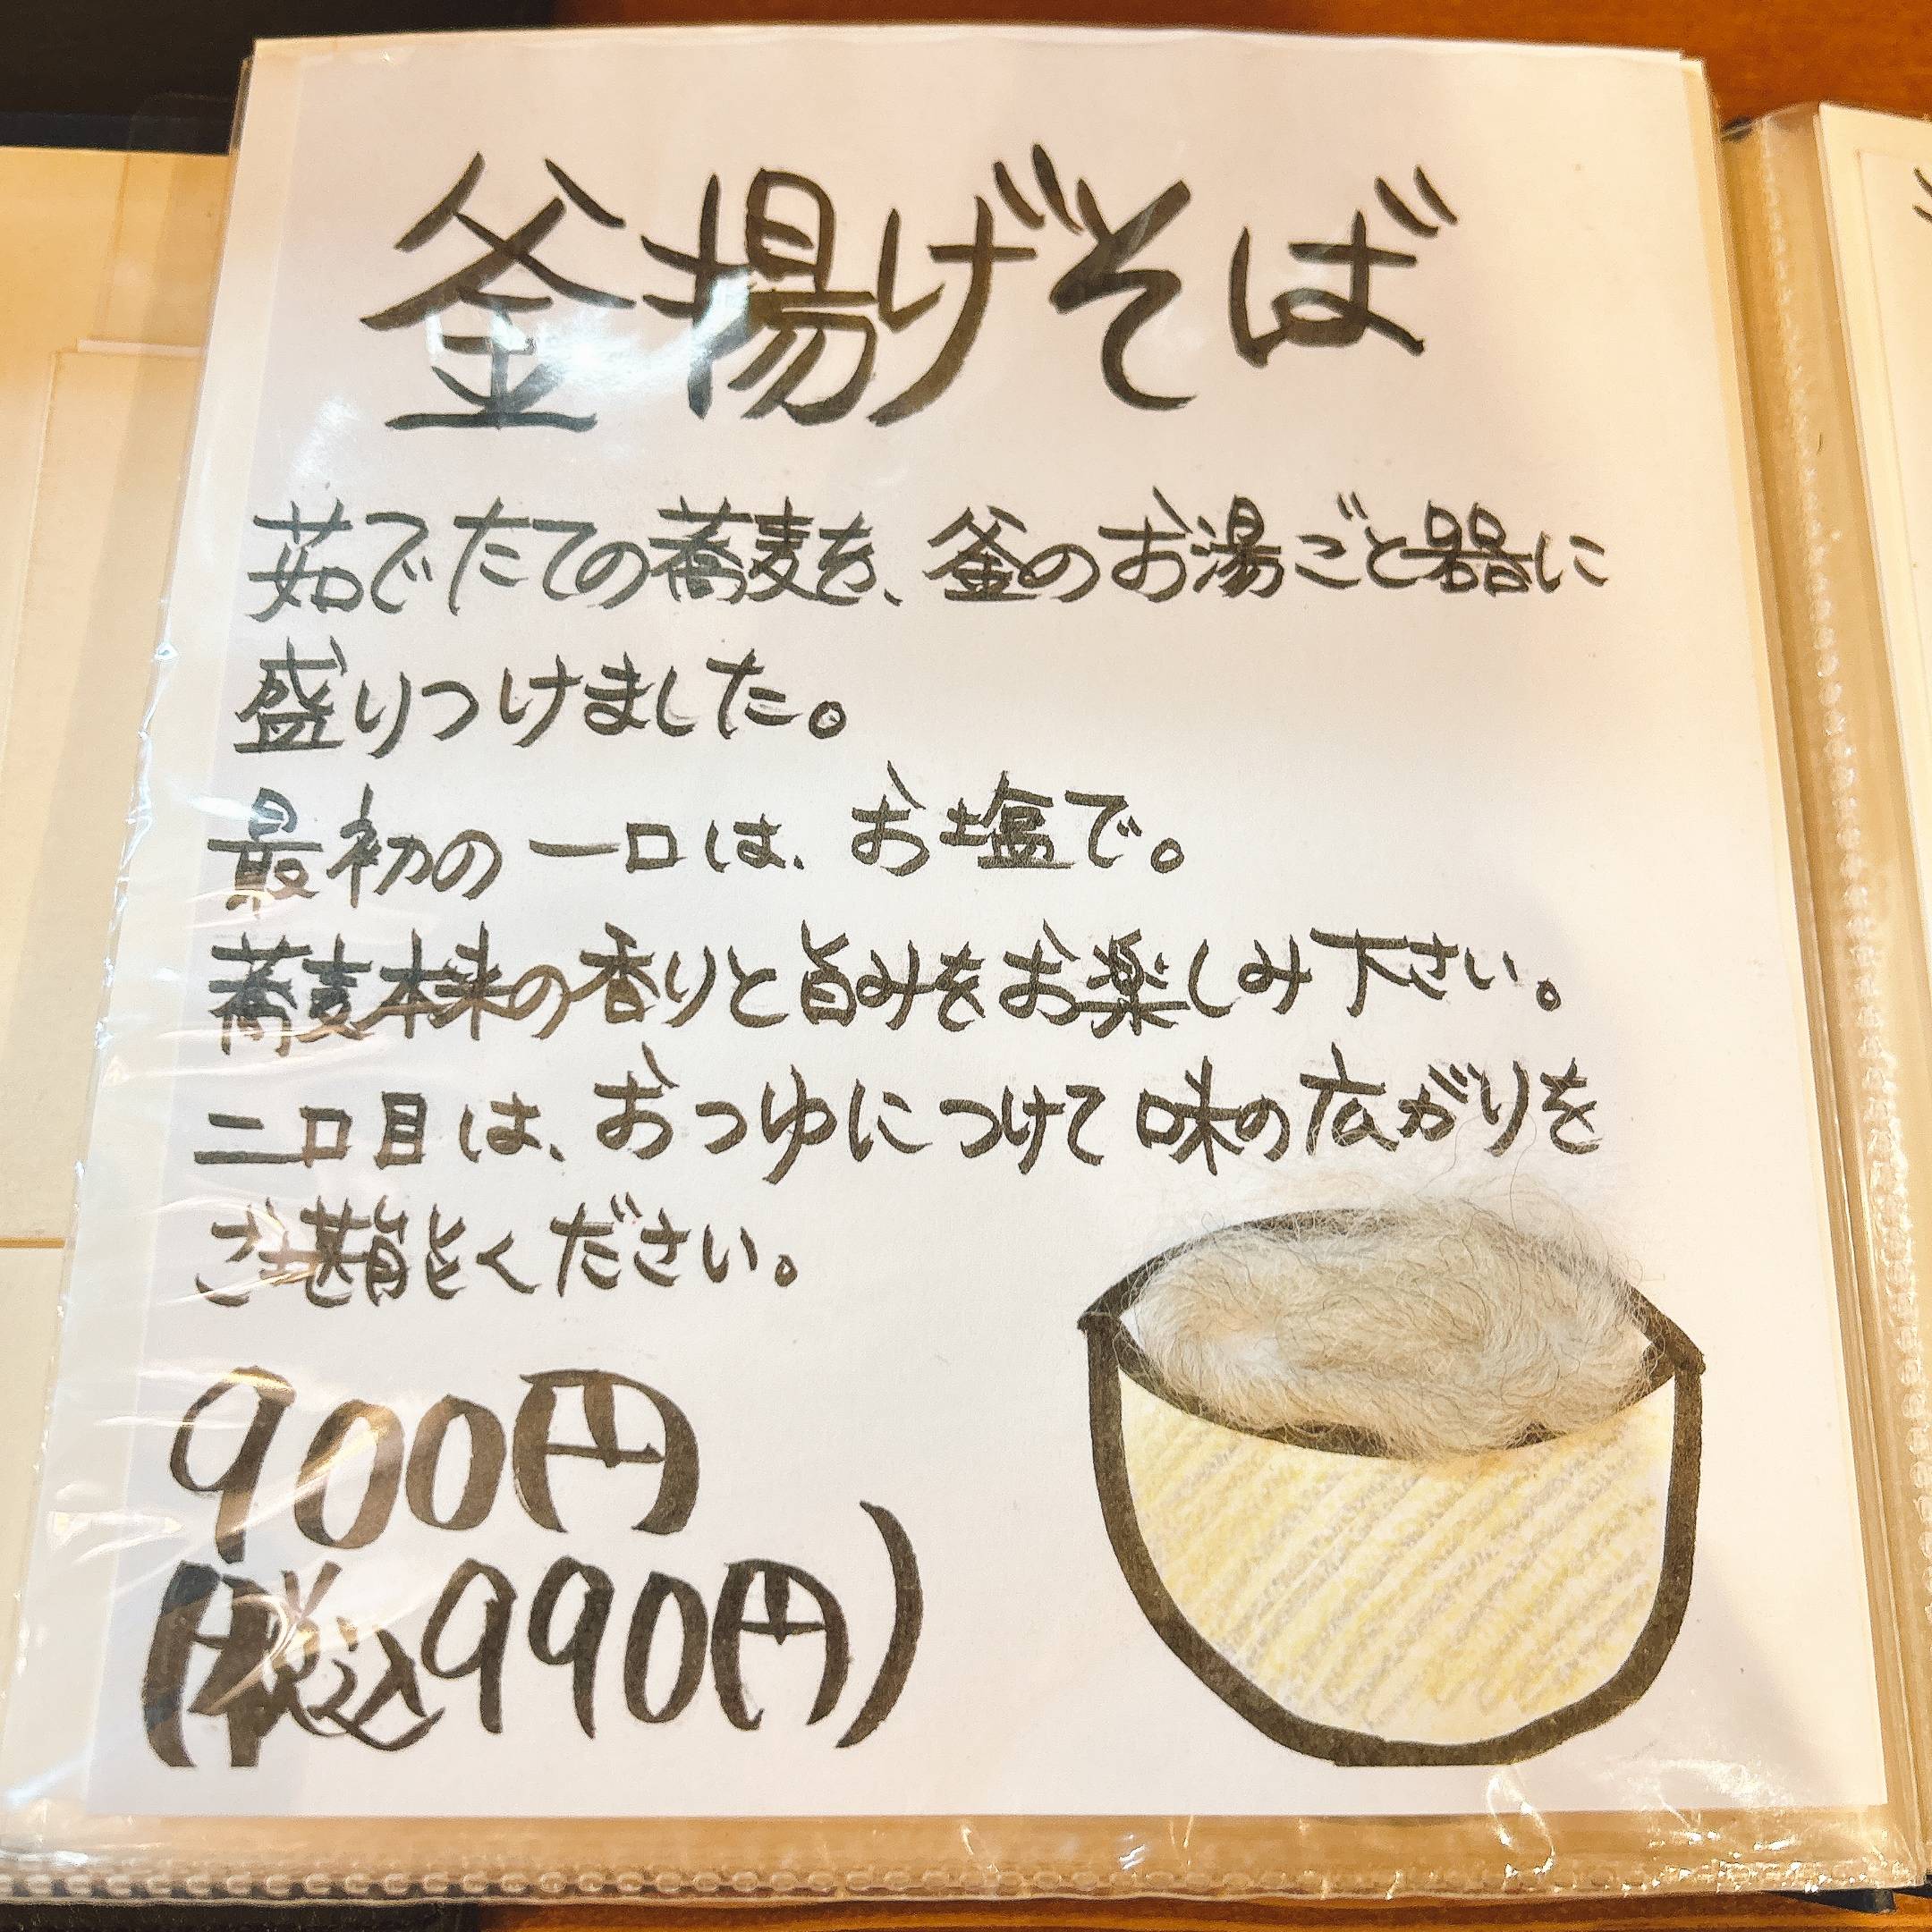 釜揚げそば
茹でたての蕎麦を、釜のお湯ごと器に
盛りつけました。
最初の一口は、お塩で。
蕎麦本来の香りと旨みをお楽しみ下さい。
二口目は、おつゆにつけて味の広がりを
ご堪能ください。
900円
(税込990円)